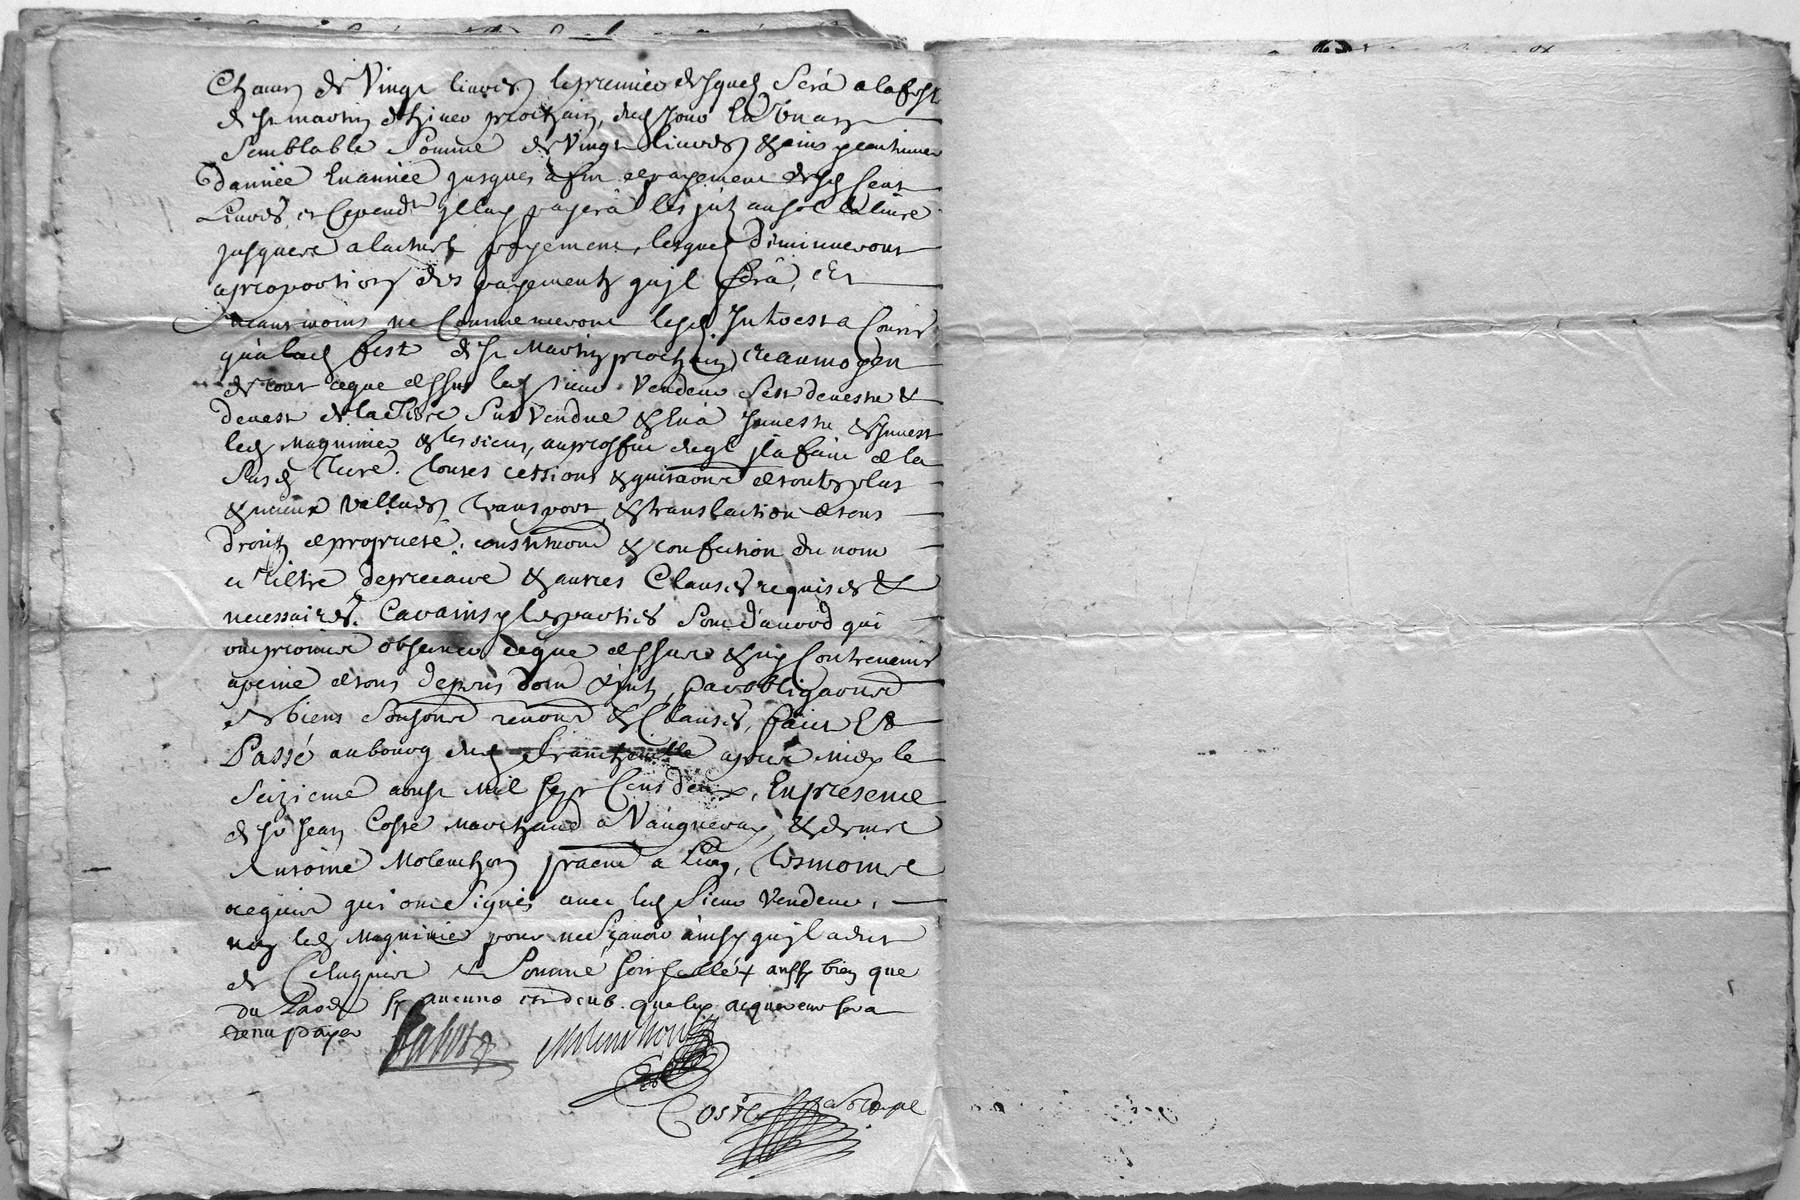 Chacun de Vingt livres, le premier desquels Sera a la feste
de St martin d'hiver prochain, dud Jour En Un an
Semblable Somme de Vingt livres & ainsy continuer
d'année En année jusques a fin de payement desd Cent
Livres et Cepend.t
jusques a lachevé payement, lesquels diminueront
a proportion des payements qu'jl fera, Et
neantmoins ne Commenceront lesd Intherests a Courir
qu'a lad feste de St Martin prochain, et au moyen
de tout ceque dessus led sieur Vendeur s'est devestu &
devest de la Terre Sus Vendue & en a Jnvestu & Jnvest
led Magninier & les siens, au proffit duql jl a fait de la
Susd Terre. toutes cessions & quittance et toutes plus
& mieux Vallues, transport, & translaction de tous
droits de proprieté, constitution & confection du nom
et tiltre de precaire & autres Clauses requises &
necessaires. Car ainsy les parties Sont d'accord qui
ont promis observer ceque dessus & n'y Contrevenir
a peine de tous depens dom & jnts, par obligaons
de biens Soubmions renons & Clauses, fait Et
Passé au bourg dud Francheville apres midy le
Seizieme aoust Mil Sept Cens deux, En presence
de Sr Jean Coste Marchand a Vaugneray, & de mre
Antoine Molenchon praen a Lion, tesmoins
requis qui ont Signés avec led Sieur Vendeur,
non led Magninier pour ne Sçavoir ainsy qu'jl a dit
de Ce Enquis & Sommé soit scellé + aussy bien que
du Pards Sy aucuns est deub. que led acquereur sera
tenu payer
Molenchon
Coste